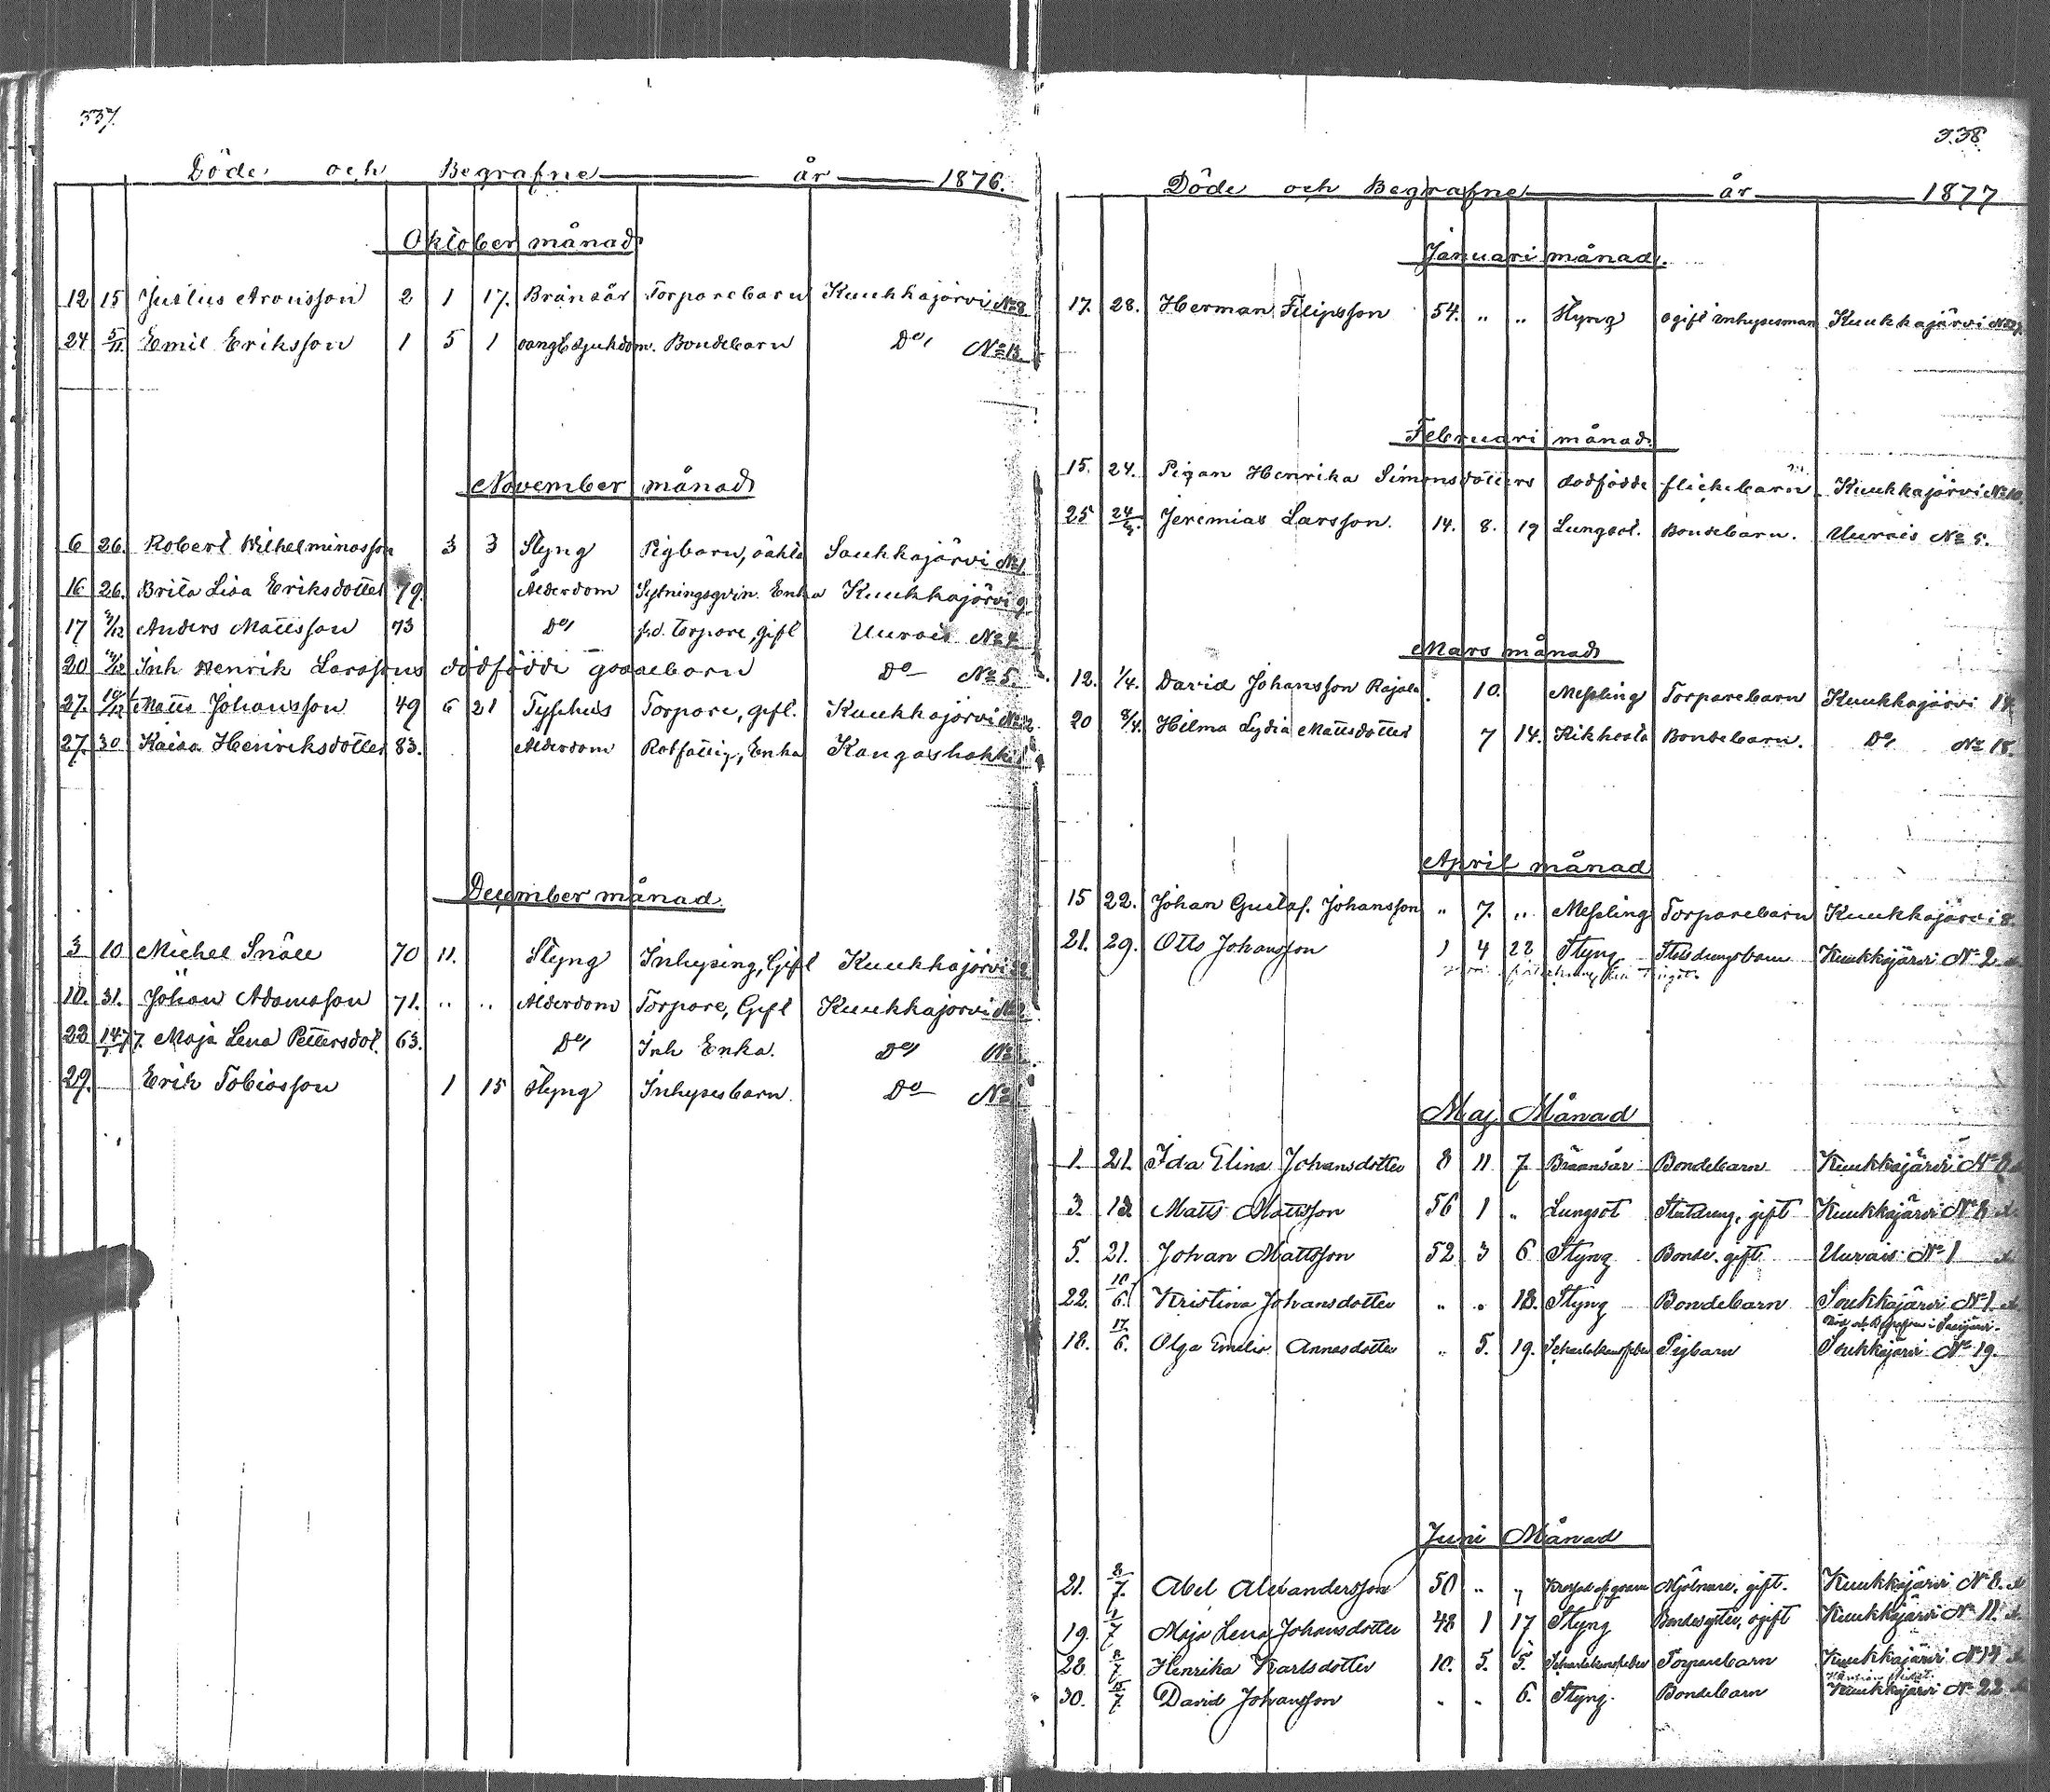 337.
Döde och Begrafne år 1876.
Oktober månad
12 15 Justus Aronsson 2 1 17. Brånsår Torparebarn Kuukkajärvi No 8
24 5/11 Emil Eriksson 1 5 1 Bondebarn Do No 13.
November månad
6 26. Robert Wilhelminasson 3 3 Styng Pigbarn, oäkta Saukkajärvi No 1.
16 26. Brita Lisa Eriksdotter 79. Ålderdom Sytningsqvin. Enka Kuukkajärvi 9.
17 Anders Mattsson 73 Do f.d. torpare, gift Uurais No 4
20 Inh Henrik Larssons dödfödde gossebarn Do No 5.
27. 10/12 Matts Johansson 49 6 21 Typhus Torpare, gift. Kuukkajärvi
27. 30 Kaisa Henriksdotter 83. Ålderdom Rotfattig, Enka Kangashakki
December månad.
3 10 Michel Snäll 70 11. Styng Inhysing, Gift Kuukkajärvi
10. 31. Johan Adamsson 71. " " Ålderdom Torpare, Gift Kuukkajärvi
22 14/1 77. Maja Lena Pettersdot. 63. Do Inh Enka. Do
29. — Erik Tobiasson 1 15 Styng Inhysesbarn. Do
338
Döde och Begrafne år 1877
Januari månad.
17. 28. Herman Filipsson 54. " " Styng ogift inhysesman Kuukkajärvi
Februari månad.
15. 24. Pigan Henrika Simonsdotters dödfödde flickebarn Kuukkajärvi No 10.
25 Jeremias Larsson. 14. 8. 19 Lungsot. Bondebarn. Uurais No 5.
Mars månad
12. 1/4. David Johansson Rajala. 10. Messling Torparebarn Kuukkajärvi 14.
20 8/4. Hilma Lydia Mattsdotter 7 14. Kikhosta Bondebarn. Do No 18.
April månad
15 22. Johan Gustaf. Johansson " 7. " Messling Torparebarn Kuukkajärvi 8.
21. 29. Otto Johansson 1 4 28 Styng Kuukkajärvi No 2.
Maj Månad
1. 21. Ida Elina Johansdotter 8 11 7. Brånsår Bondebarn Kuukkajärvi No 8
3. 13. Matts Mattsson 56 1 " Lungsot Statdreng, gift Kuukkajärvi No 8
5. 21. Johan Mattsson 52 3 6 Styng Bonde. gift Uurais No 1
22. 10/6. Kristina Johansdotter " " 18. Styng Bondebarn Soukkajärvi No 1.
18. 17/6. Olga Emilia Annasdotter " 5. 19. Scharlakansfeber Pigbarn Soukkajärvi No 19.
Juni Månad
21. 8/7. Abel Alexandersson 50 " " Mjölnare, gift. Kuukkajärvi No 8.
19. 1/7 Maja Lena Johansdotter 48 1 17 Styng ogift Kuukkajärvi No 11.
28 8/7 Henrika Karlsdotter 10. 5. 5. Scharlakansfeber Torparebarn Kuukkajärvi No 14
30. 15/7. David Johansson " " 6. Styng. Bondebarn Kuukkajärvi No 22